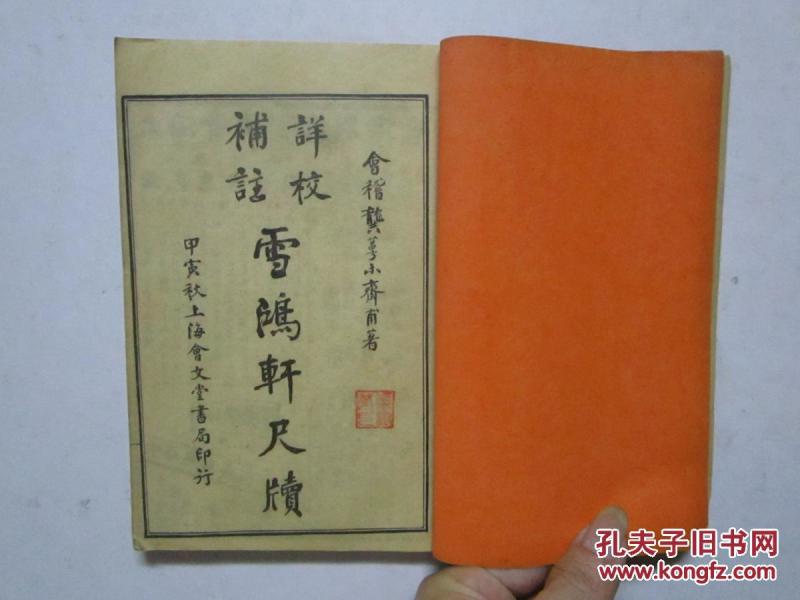 會稽龔萼小齋甫著
詳校
補註
雪鴻軒尺牘
甲寅秋上海會文堂書局印行
孔夫子旧书网
www.kongfz.com